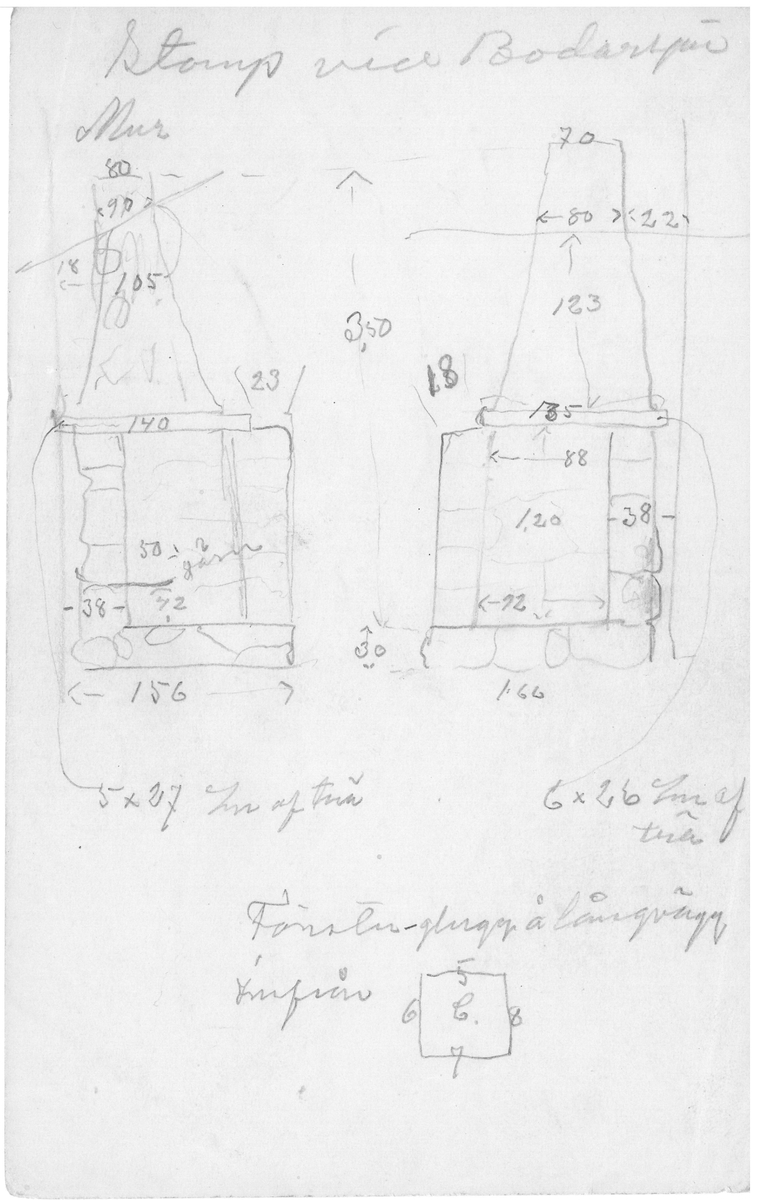 Stomp vid Bodarsjön
Mur
80
90
18
105
23
140
50
38
42
156
3,50
30
70
80
22
123
18
135
88
1,20
38
92
1,66
5 x 27 Cm af trä
6 x 26 Cm af
trä
Fönster-glugg å långvägg
inifrån
5
6
C.
8
7